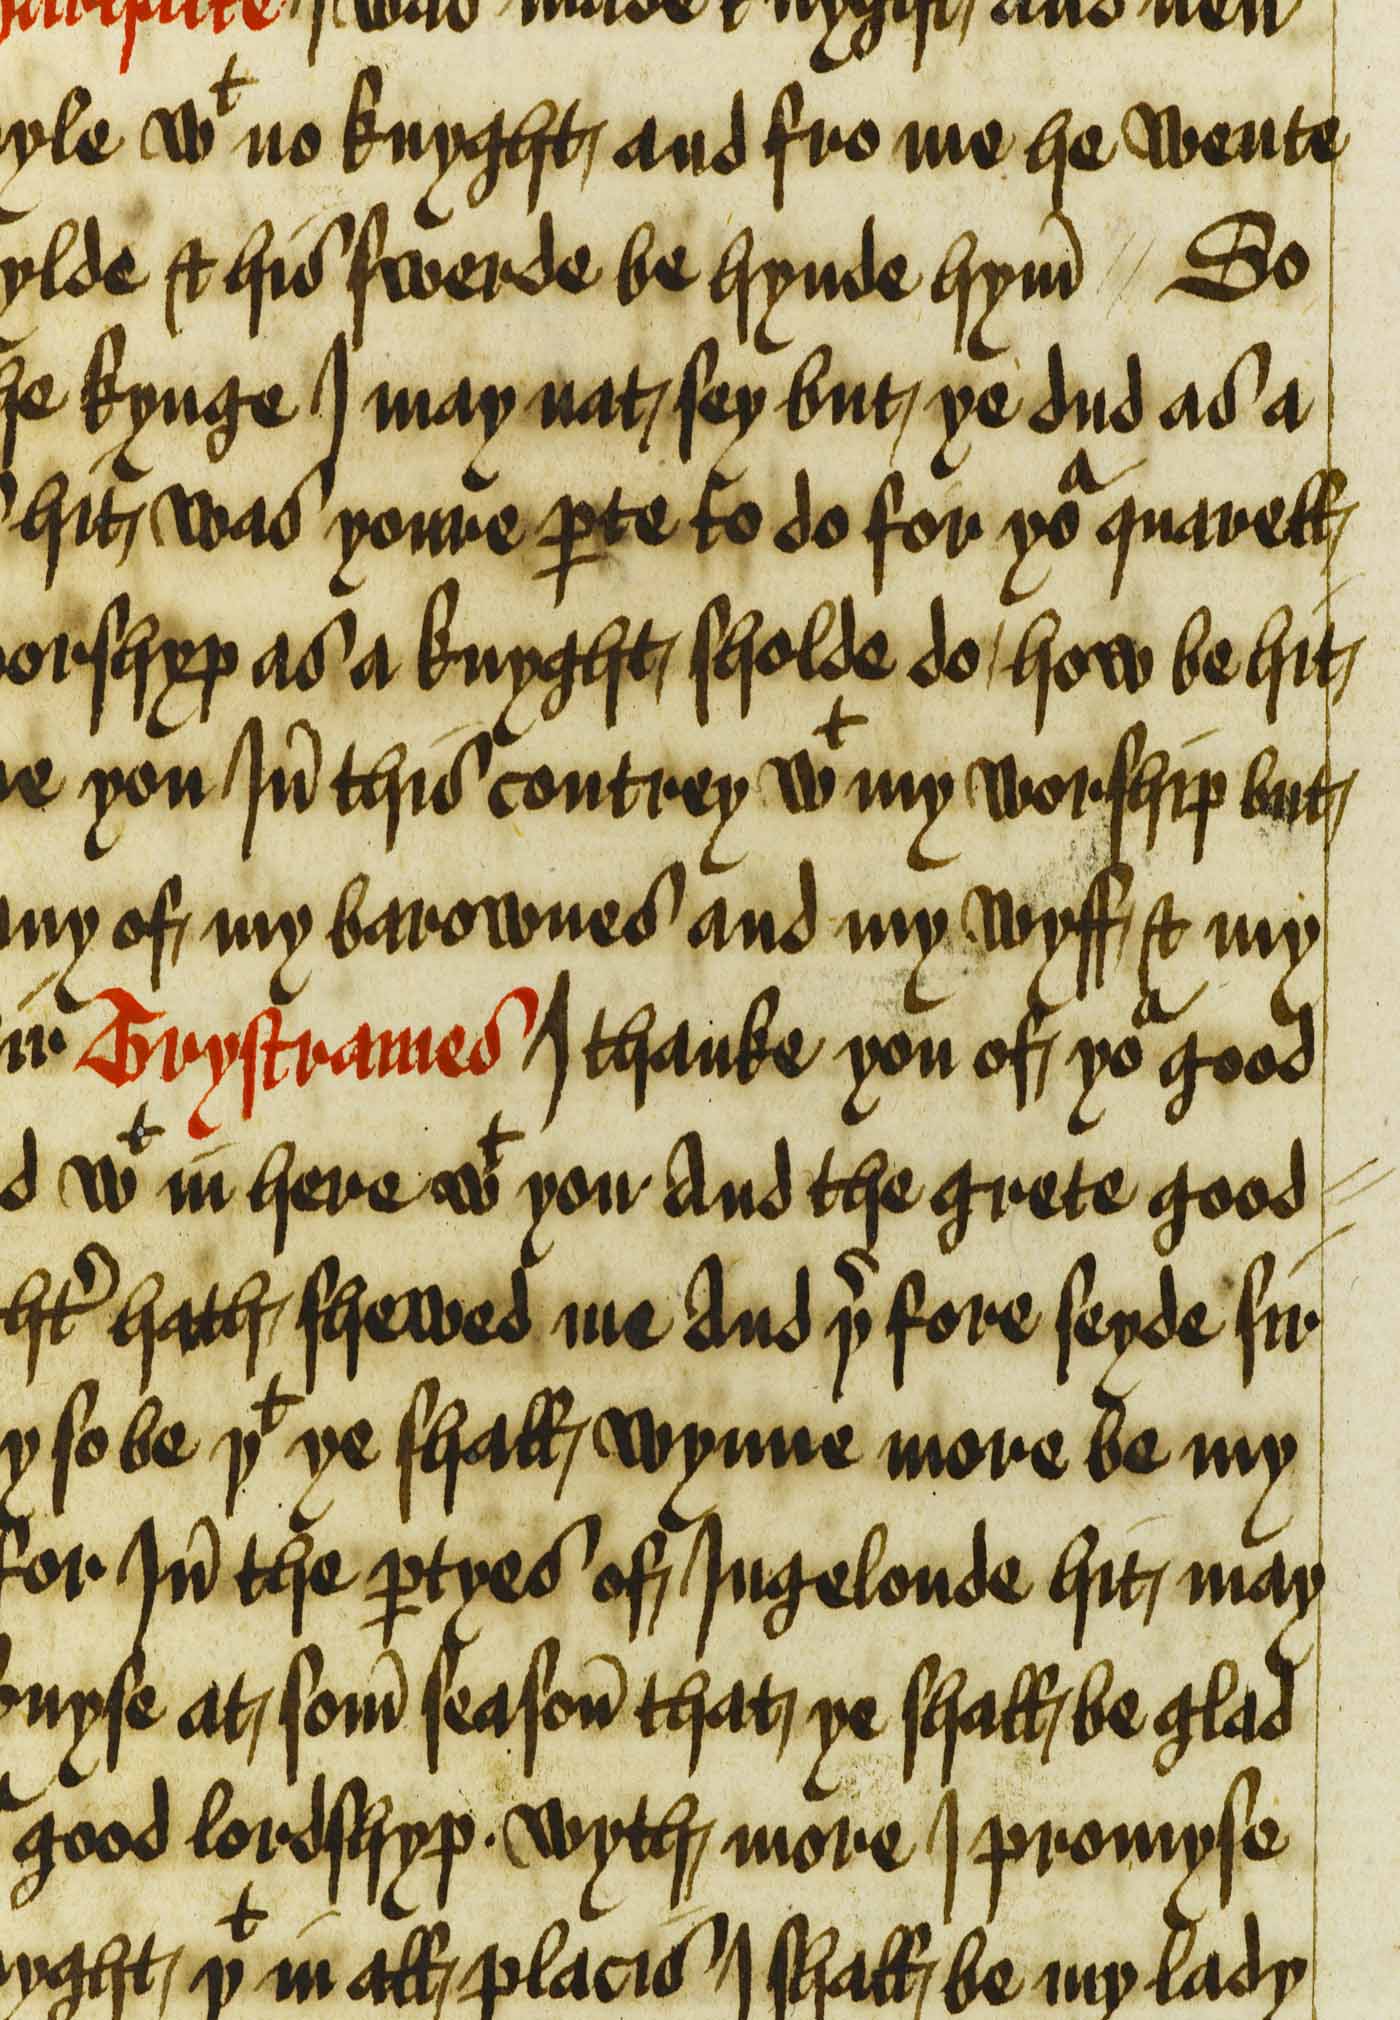 was made knyght and neu
yle wᵗ no knyght and fro me he wente
ylde & his swerde be hynde hym̄ // So
he kynge I may nat sey but ye dud as a
hit was youre ꝑte to do for yoᵃ quarell
orshyp as a knyght sholde do / how be hit
e you In̄ this contrey wᵗ my worship but
ny of my barownes and my wyff & my
ir Trystrames I thanke you of yoᵃ good
d wᵗ in here wᵗ you And the grete good //
hat̉ hath shewed me And ỷ fore seyde sir
y so be yᵗ ye shall wynne more be my
for In̄ the ꝑtyes of Ingelonde hit may
uyse at som̄ season̄ that ye shall be glad
good lordshyp . wyth more I promyse
yght yᵗ in all placis I shall be my lady